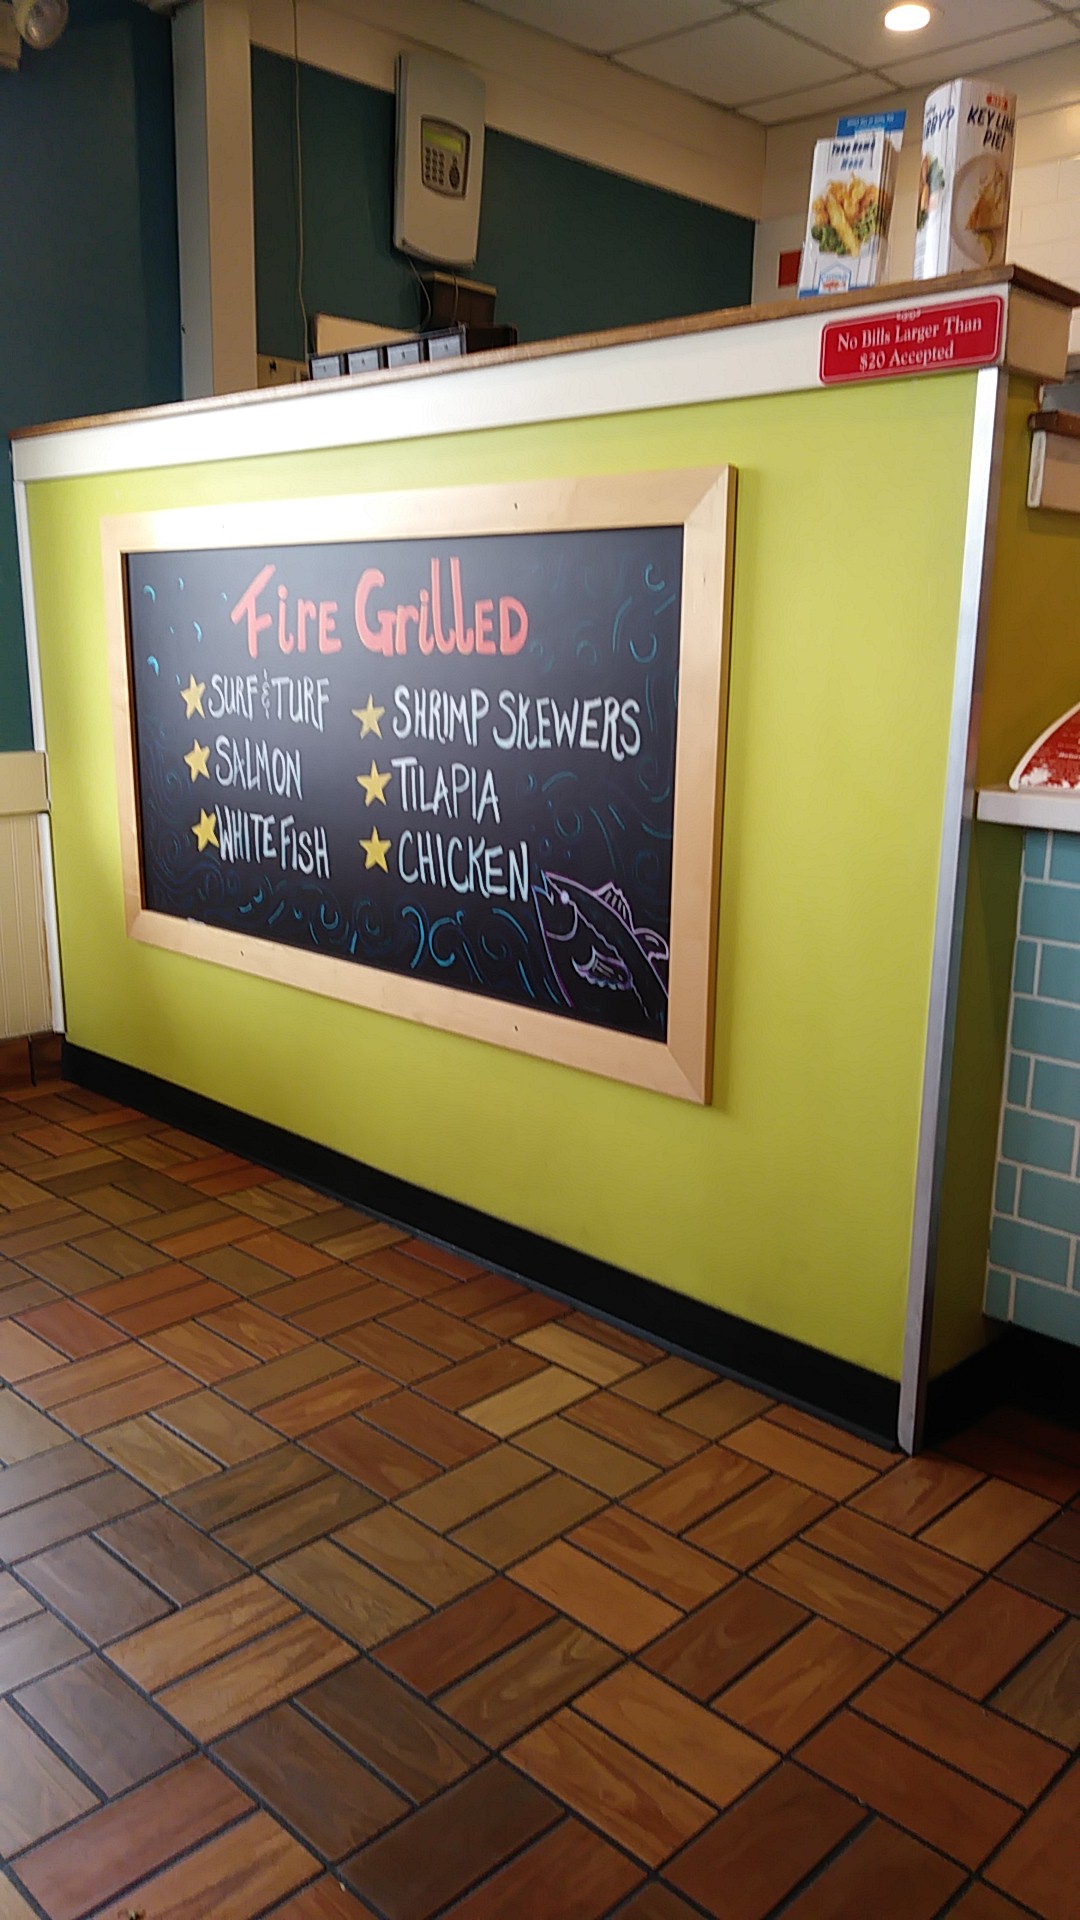 Take Home
Menu
KEY LIME
PIE!
No Bills Larger Than
$20 Accepted
Fire GrillED
SURF & TURF
SALMON
WHITE FISH
SHRIMP SKEWERS
TILAPIA
CHICKEN